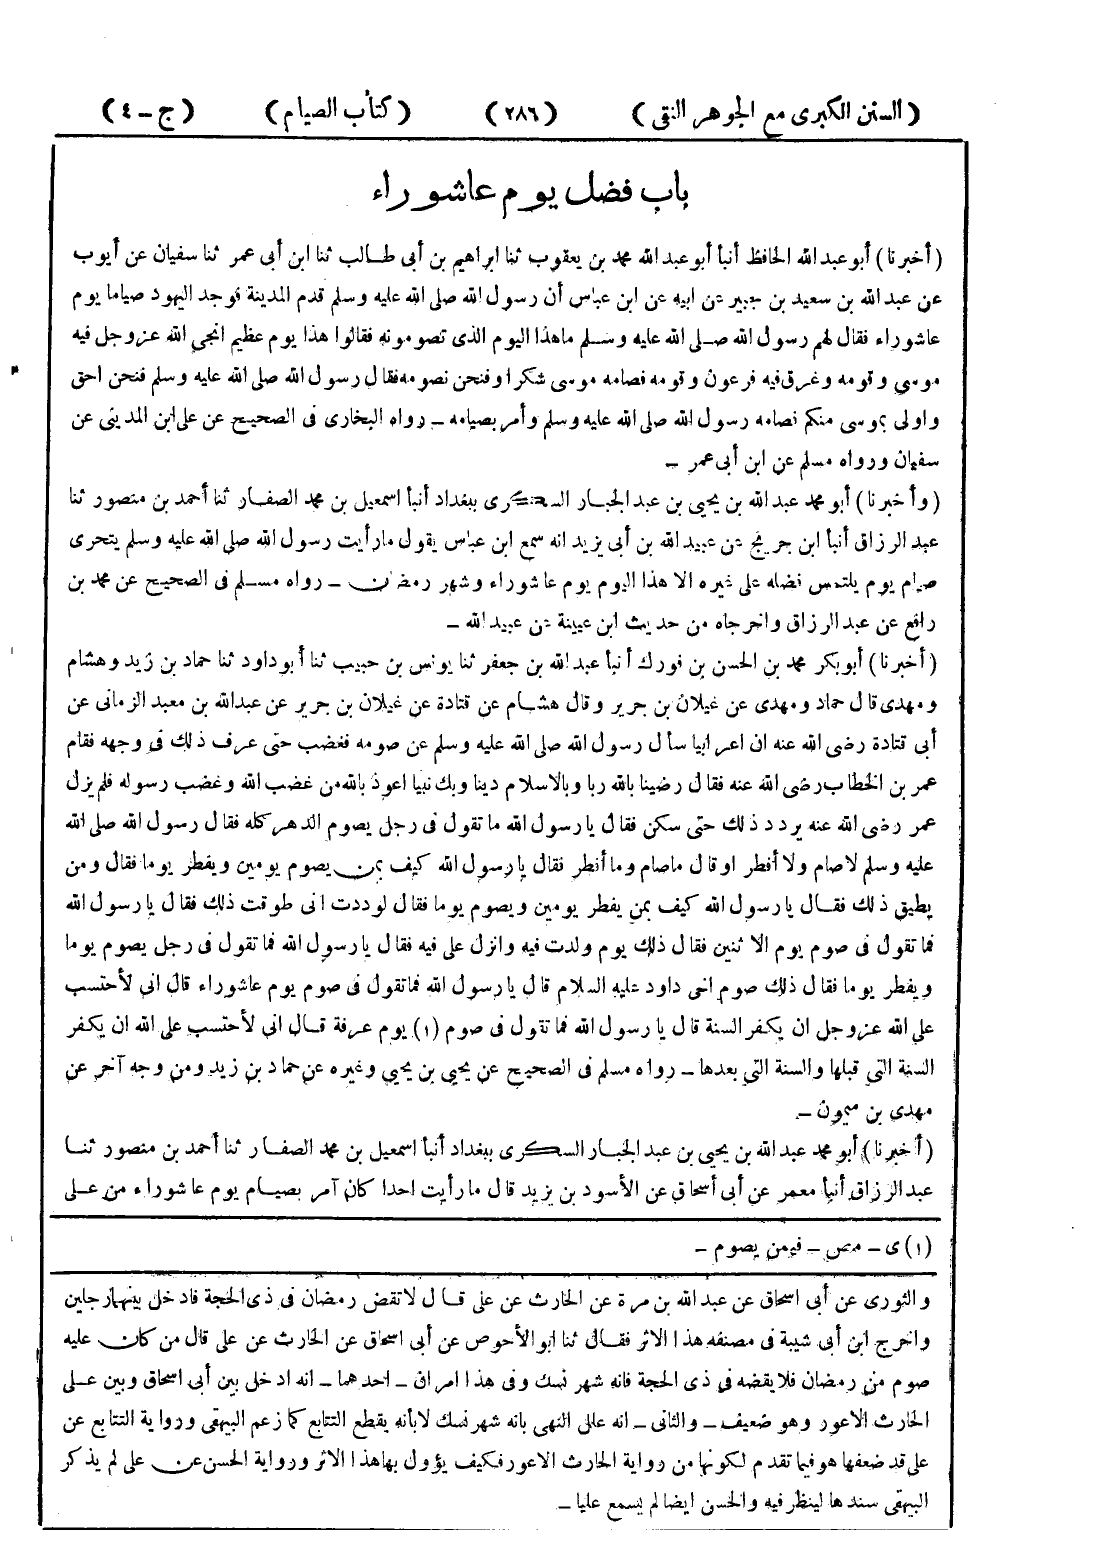 ( السنن الكبرى مع الجوهر النقى ) ( ٢٨٦ ) ( كتاب الصيام ) ( ج - ٤ )
باب فضل يوم عاشوراء
( أخبرنا ) أبو عبد الله الحافظ أنبأ أبو عبد الله محمد بن يعقوب ثنا ابراهيم بن أبى طالب ثنا ابن أبى عمر ثنا سفيان عن أيوب
عن عبد الله بن سعيد بن جبير عن ابيه عن ابن عباس أن رسول الله صلى الله عليه وسلم قدم المدينة فوجد اليهود صياما يوم
عاشوراء فقال لهم رسول الله صلى الله عليه وسلم ما هذا اليوم الذى تصومونه فقالوا هذا يوم عظيم انجى الله عزوجل فيه
موسى وقومه وغرق فيه فرعون وقومه فصامه موسى شكرا وفنحن نصومه فقال رسول الله صلى الله عليه وسلم فنحن احق
واولى بموسى منكم فصامه رسول الله صلى الله عليه وسلم وأمر بصيامه - رواه البخارى فى الصحيح عن على ابن المدينى عن
سفيان ورواه مسلم عن ابن أبى عمر -
( وأخبرنا ) أبو محمد عبد الله بن يحيى بن عبد الجبار السكرى ببغداد أنبأ اسمعيل بن محمد الصفار ثنا أحمد بن منصور ثنا
عبد الرزاق أنبأ ابن جريج عن عبيد الله بن أبى يزيد انه سمع ابن عباس يقول ما رأيت رسول الله صلى الله عليه وسلم يتحرى
صيام يوم يلتمس فضله على غيره الا هذا اليوم يوم عاشوراء وشهر رمضان - رواه مسلم فى الصحيح عن محمد بن
رافع عن عبد الرزاق واخرجاه من حديث ابن عيينة عن عبيد الله -
( أخبرنا ) أبو بكر محمد بن الحسن بن فورك أنبأ عبد الله بن جعفر ثنا يونس بن حبيب ثنا أبو داود ثنا حماد بن زيد وهشام
ومهدى قال حماد ومهدى عن غيلان بن جرير وقال هشام عن قتادة عن غيلان بن جرير عن عبد الله بن معبد الزمانى عن
أبى قتادة رضى الله عنه ان اعرابيا سأل رسول الله صلى الله عليه وسلم عن صومه فغضب حتى عرف ذلك فى وجهه فقام
عمر بن الخطاب رضى الله عنه فقال رضينا بالله ربا وبالاسلام دينا وبك نبيا اعوذ بالله من غضب الله وغضب رسوله فلم يزل
عمر رضى الله عنه يردد ذلك حتى سكن فقال يا رسول الله ما تقول فى رجل يصوم الدهر كله فقال رسول الله صلى الله
عليه وسلم لا صام ولا أفطر او قال ما صام وما أفطر فقال يا رسول الله كيف بمن يصوم يومين ويفطر يوما فقال ومن
يطيق ذلك فقال يا رسول الله كيف بمن يفطر يومين ويصوم يوما فقال لوددت انى طوقت ذلك فقال يا رسول الله
فما تقول فى صوم يوم الاثنين فقال ذلك يوم ولدت فيه وانزل على فيه فقال يا رسول الله فما تقول فى رجل يصوم يوما
ويفطر يوما فقال ذلك صوم اخى داود عليه السلام قال يا رسول الله فما تقول فى صوم يوم عاشوراء قال انى لأحتسب
على الله عزوجل ان يكفر السنة قال يا رسول الله فما تقول فى صوم (١) يوم عرفة قال انى لأحتسب على الله ان يكفر
السنة التى قبلها والسنة التى بعدها - رواه مسلم فى الصحيح عن يحيى بن يحيى وغيره عن حماد بن زيد ومن وجه آخر عن
مهدى بن ميمون -
( أخبرنا ) أبو محمد عبد الله بن يحيى بن عبد الجبار السكرى ببغداد أنبأ اسمعيل بن محمد الصفار ثنا أحمد بن منصور ثنا
عبد الرزاق أنبأ معمر عن أبى أسحاق عن الأسود بن يزيد قال ما رأيت احدا كان آمر بصيام يوم عاشوراء من على
(١) ى - مص - فيمن يصوم -
والثورى عن أبى اسحاق عن عبد الله بن مرة عن الحارث عن على قال لا تقض رمضان فى ذى الحجة فادخل بينهما رجلين
واخرج ابن أبى شيبة فى مصنفه هذا الاثر فقال ثنا ابو الأحوص عن أبى اسحاق عن الحارث عن على قال من كان عليه
صوم من رمضان فلا يقضه فى ذى الحجة فانه شهر نسك وفى هذا امران - احدهما - انه ادخل بين أبى اسحاق وبين على
الحارث الاعور وهو ضعيف - والثانى - انه علل النهى بانه شهر نسك لا بأنه يقطع التتابع كما زعم البيهقى ورواية التتابع عن
على قد ضعفها هو فيما تقدم لكونها من رواية الحارث الاعور فكيف يؤول بها هذا الاثر ورواية الحسن عن على لم يذكر
البيهقى سندها لينظر فيه والحسن ايضا لم يسمع عليا -